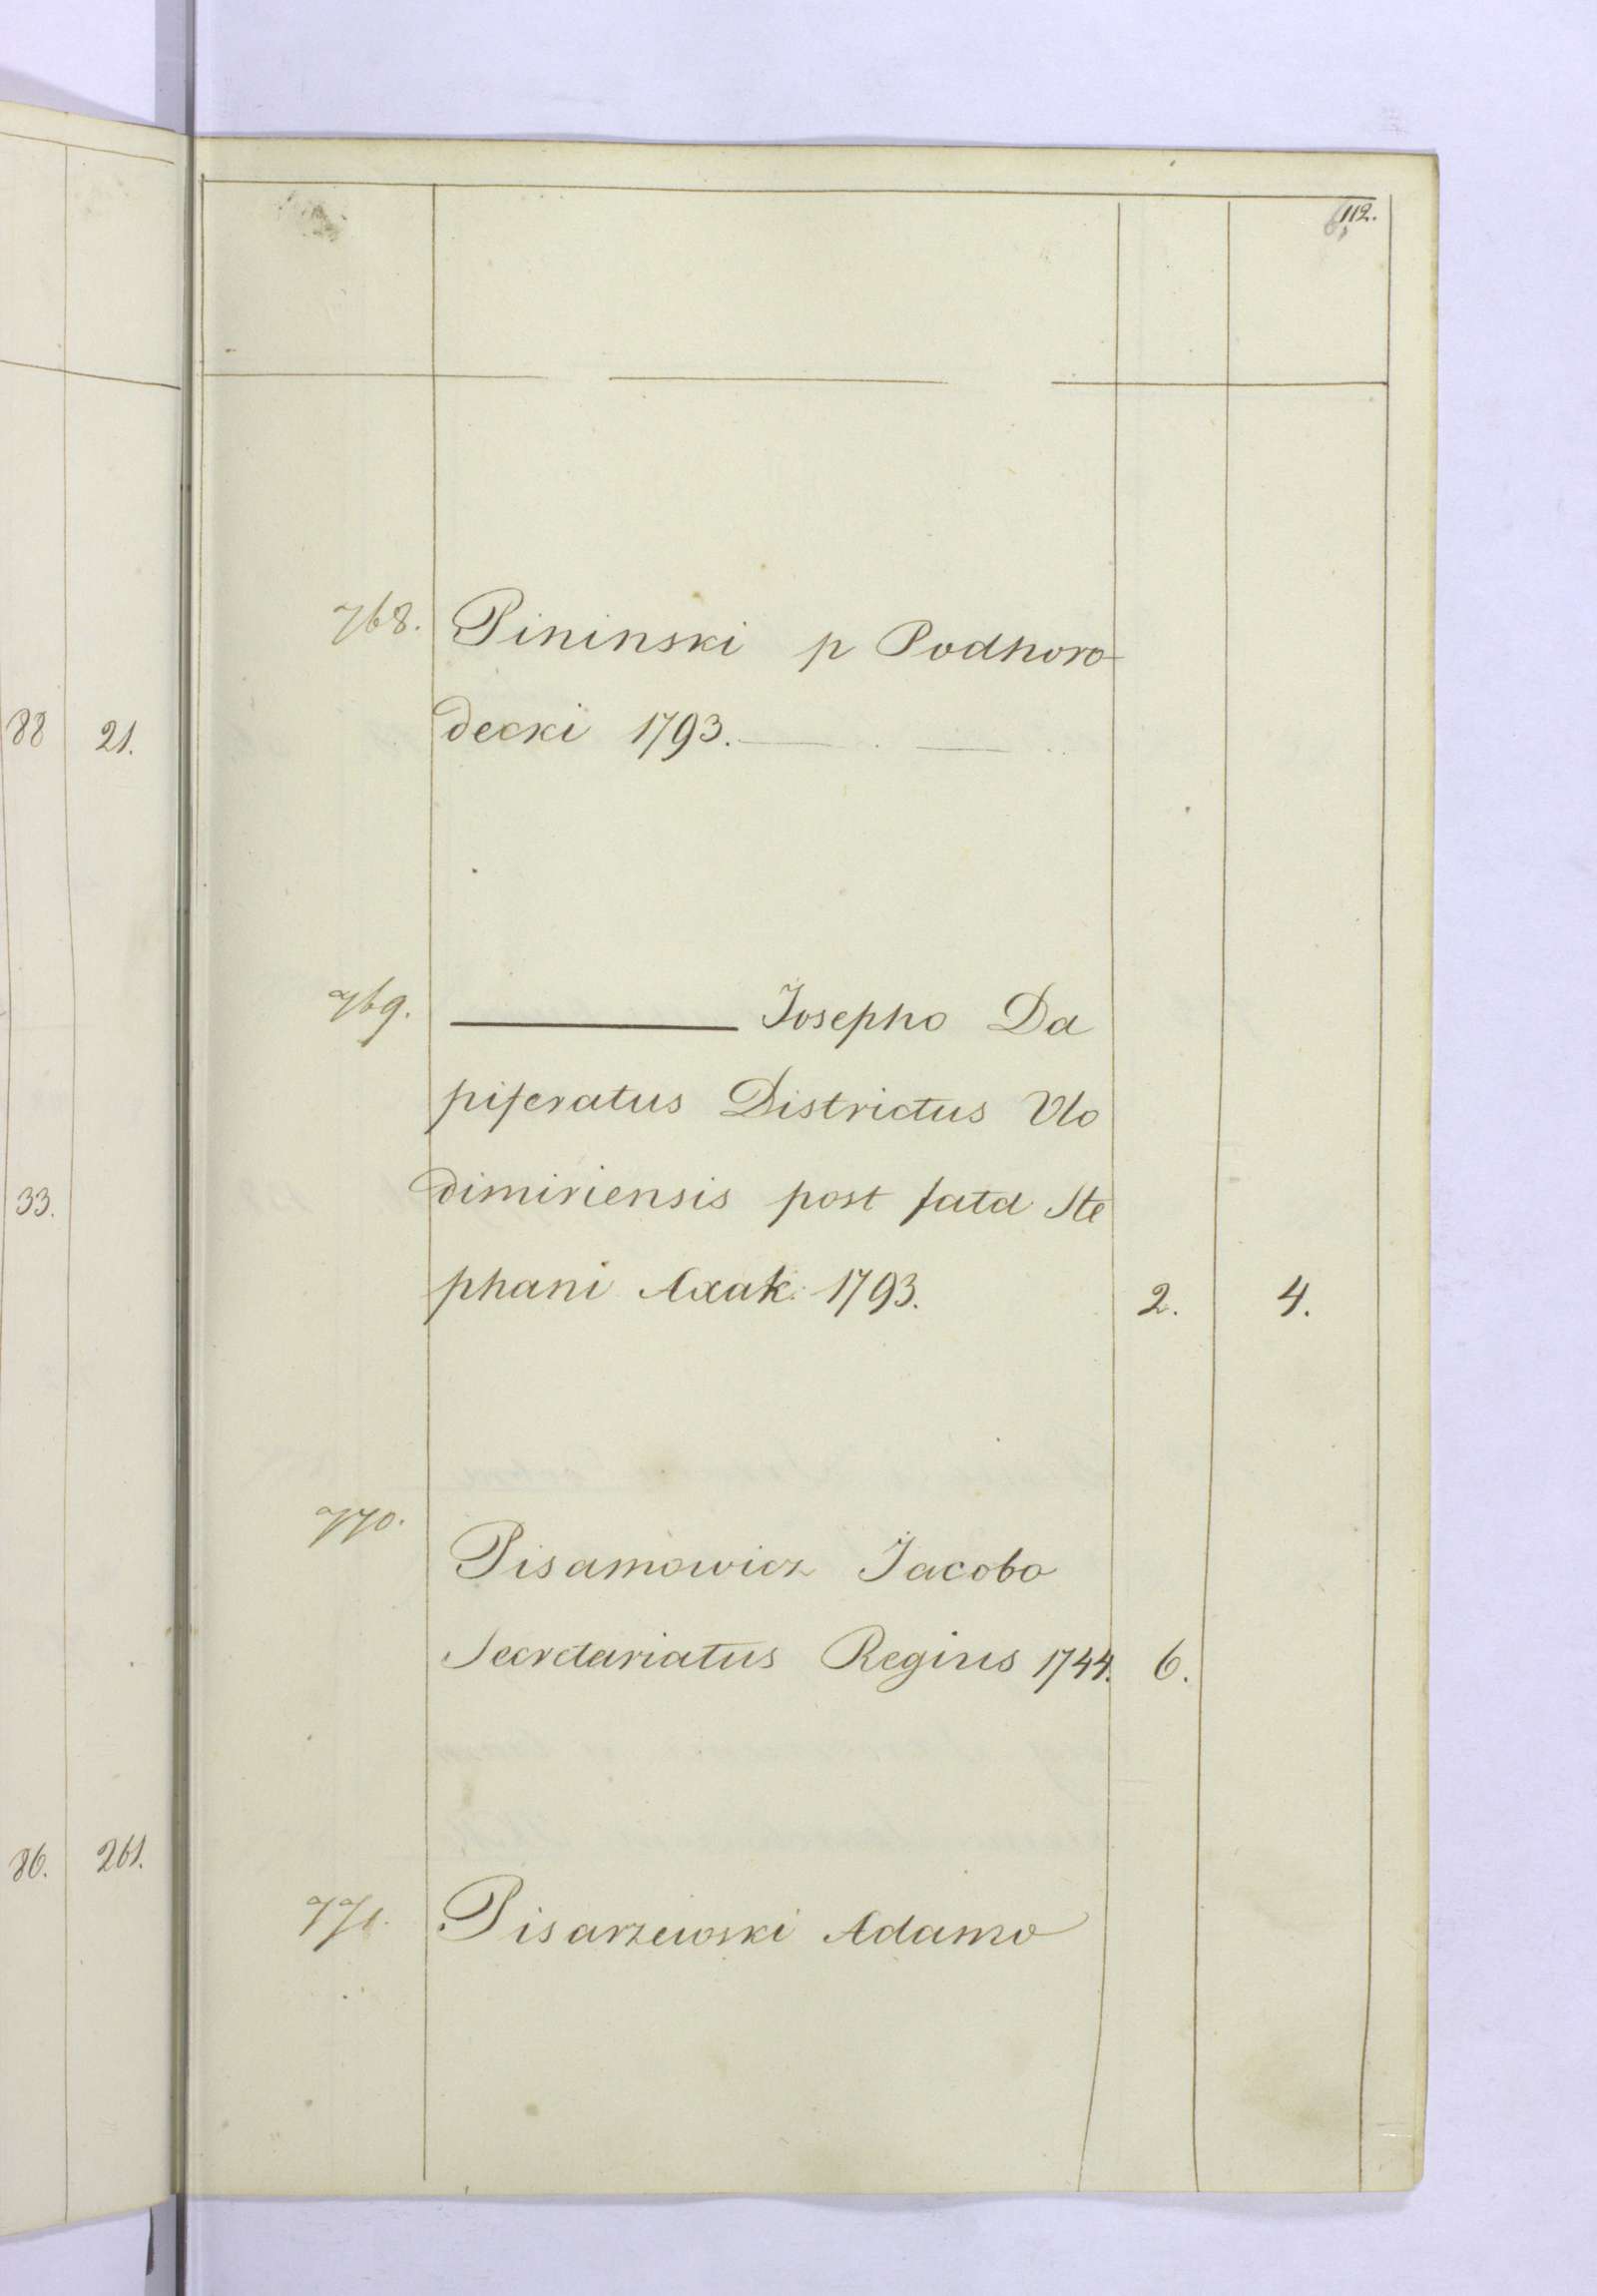 112.
768. Pininski p Podhoro-
decki 1793.
88 21.
769. ——— Josepho Da
piferatus Districtus Vlo
dimiriensis post fata Ste
33.
phani Axak 1793. 2. 4.
770.
Pisamowicz Jacobo
Secretariatus Regius 1744. 6.
86. 261.
771. Pisarzewski Adamo